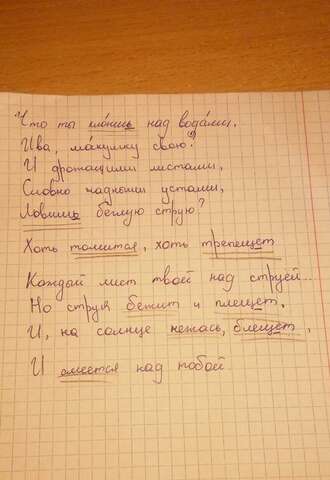 Что ты клóнишь над водáми,
Ива, мáкушку свою?
И дрожащими листами,
Словно жадными устами,
Ловишь беглую струю?
Хоть томится, хоть трепещет
Каждый лист твой над струёй...
Но струя бежит и плещет,
И, на солнце нежась, блещет,
И смеется над тобой